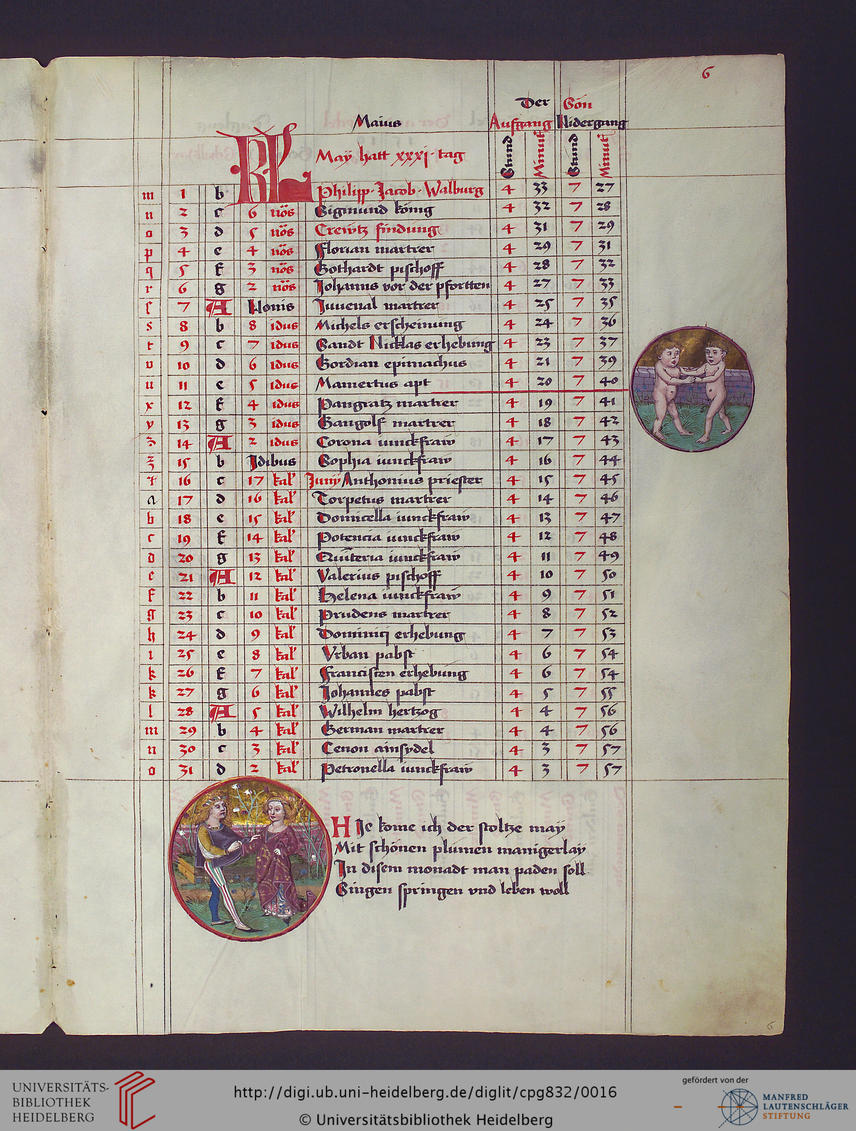 6
Der Son
Maius Aufgang Nidergang
KL May hatt xxxj tag Stund Minut Stund Minut
m 1 b Philipp Jacob Walburg 4 33 7 27
n 2 c 6 nos Sigmund konig 4 32 7 28
o 3 d 5 nos Crewtz findung 4 31 7 29
p 4 e 4 nos Florian martrer 4 29 7 31
q 5 f 3 nos Gothardt pischoff 4 28 7 32
r 6 g 2 nos Johanns vor der pfortten 4 27 7 33
ſ 7 A Nonis Juuenal martrer 4 25 7 35
s 8 b 8 idus Michels erscheinung 4 24 7 36
t 9 c 7 idus Sandt Nicklas erhebung 4 23 7 37
v 10 d 6 idus Gordian epimachus 4 21 7 39
u 11 e 5 idus Mamertus apt 4 20 7 40
x 12 f 4 idus Pangratz martrer 4 19 7 41
y 13 g 3 idus Gangolf martrer 4 18 7 42
z 14 A 2 idus Corona iunckfraw 4 17 7 43
15 b Idibus Sophia iunckfraw 4 16 7 44
16 c 17 kal' Junij Anthonius priester 4 15 7 45
a 17 d 16 kal' Torpetus martrer 4 14 7 46
b 18 e 15 kal' Domicella iunckfraw 4 13 7 47
c 19 f 14 kal' Potencia iunckfraw 4 12 7 48
d 20 g 13 kal' Quiteria iunckfraw 4 11 7 49
e 21 A 12 kal' Valerius pischoff 4 10 7 50
f 22 b 11 kal' Helena iunckfraw 4 9 7 51
g 23 c 10 kal' Prudens martrer 4 8 7 52
h 24 d 9 kal' Dominicj erhebung 4 7 7 53
i 25 e 8 kal' Vrban pabst 4 6 7 54
k 26 f 7 kal' Francisten erhebung 4 6 7 54
k 27 g 6 kal' Johannes pabst 4 5 7 55
l 28 A 5 kal' Wilhelm hertzog 4 4 7 56
m 29 b 4 kal' German martrer 4 4 7 56
n 30 c 3 kal' Cenon ainsydel 4 3 7 57
o 31 d 2 kal' Petronella iunckfraw 4 3 7 57
HIe kome ich der stoltze may
Mit schönen plůmen manigerlay
In disem monadt man paden soll
Singen springen vnd leben woll
6
UNIVERSITÄTS-
BIBLIOTHEK
HEIDELBERG
http://digi.ub.uni-heidelberg.de/diglit/cpg832/0016
© Universitätsbibliothek Heidelberg
gefördert von der
MANFRED
LAUTENSCHLÄGER
STIFTUNG